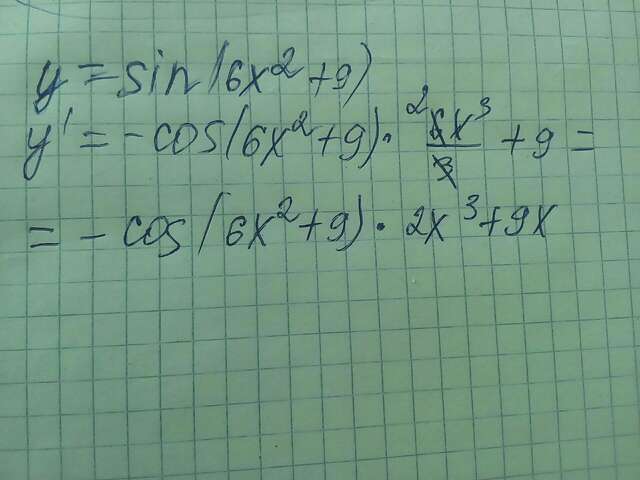 y = sin(6x² + 9)
y' = -cos(6x² + 9) · ²6x³/3 + 9 =
= - cos(6x² + 9) · 2x³ + 9x